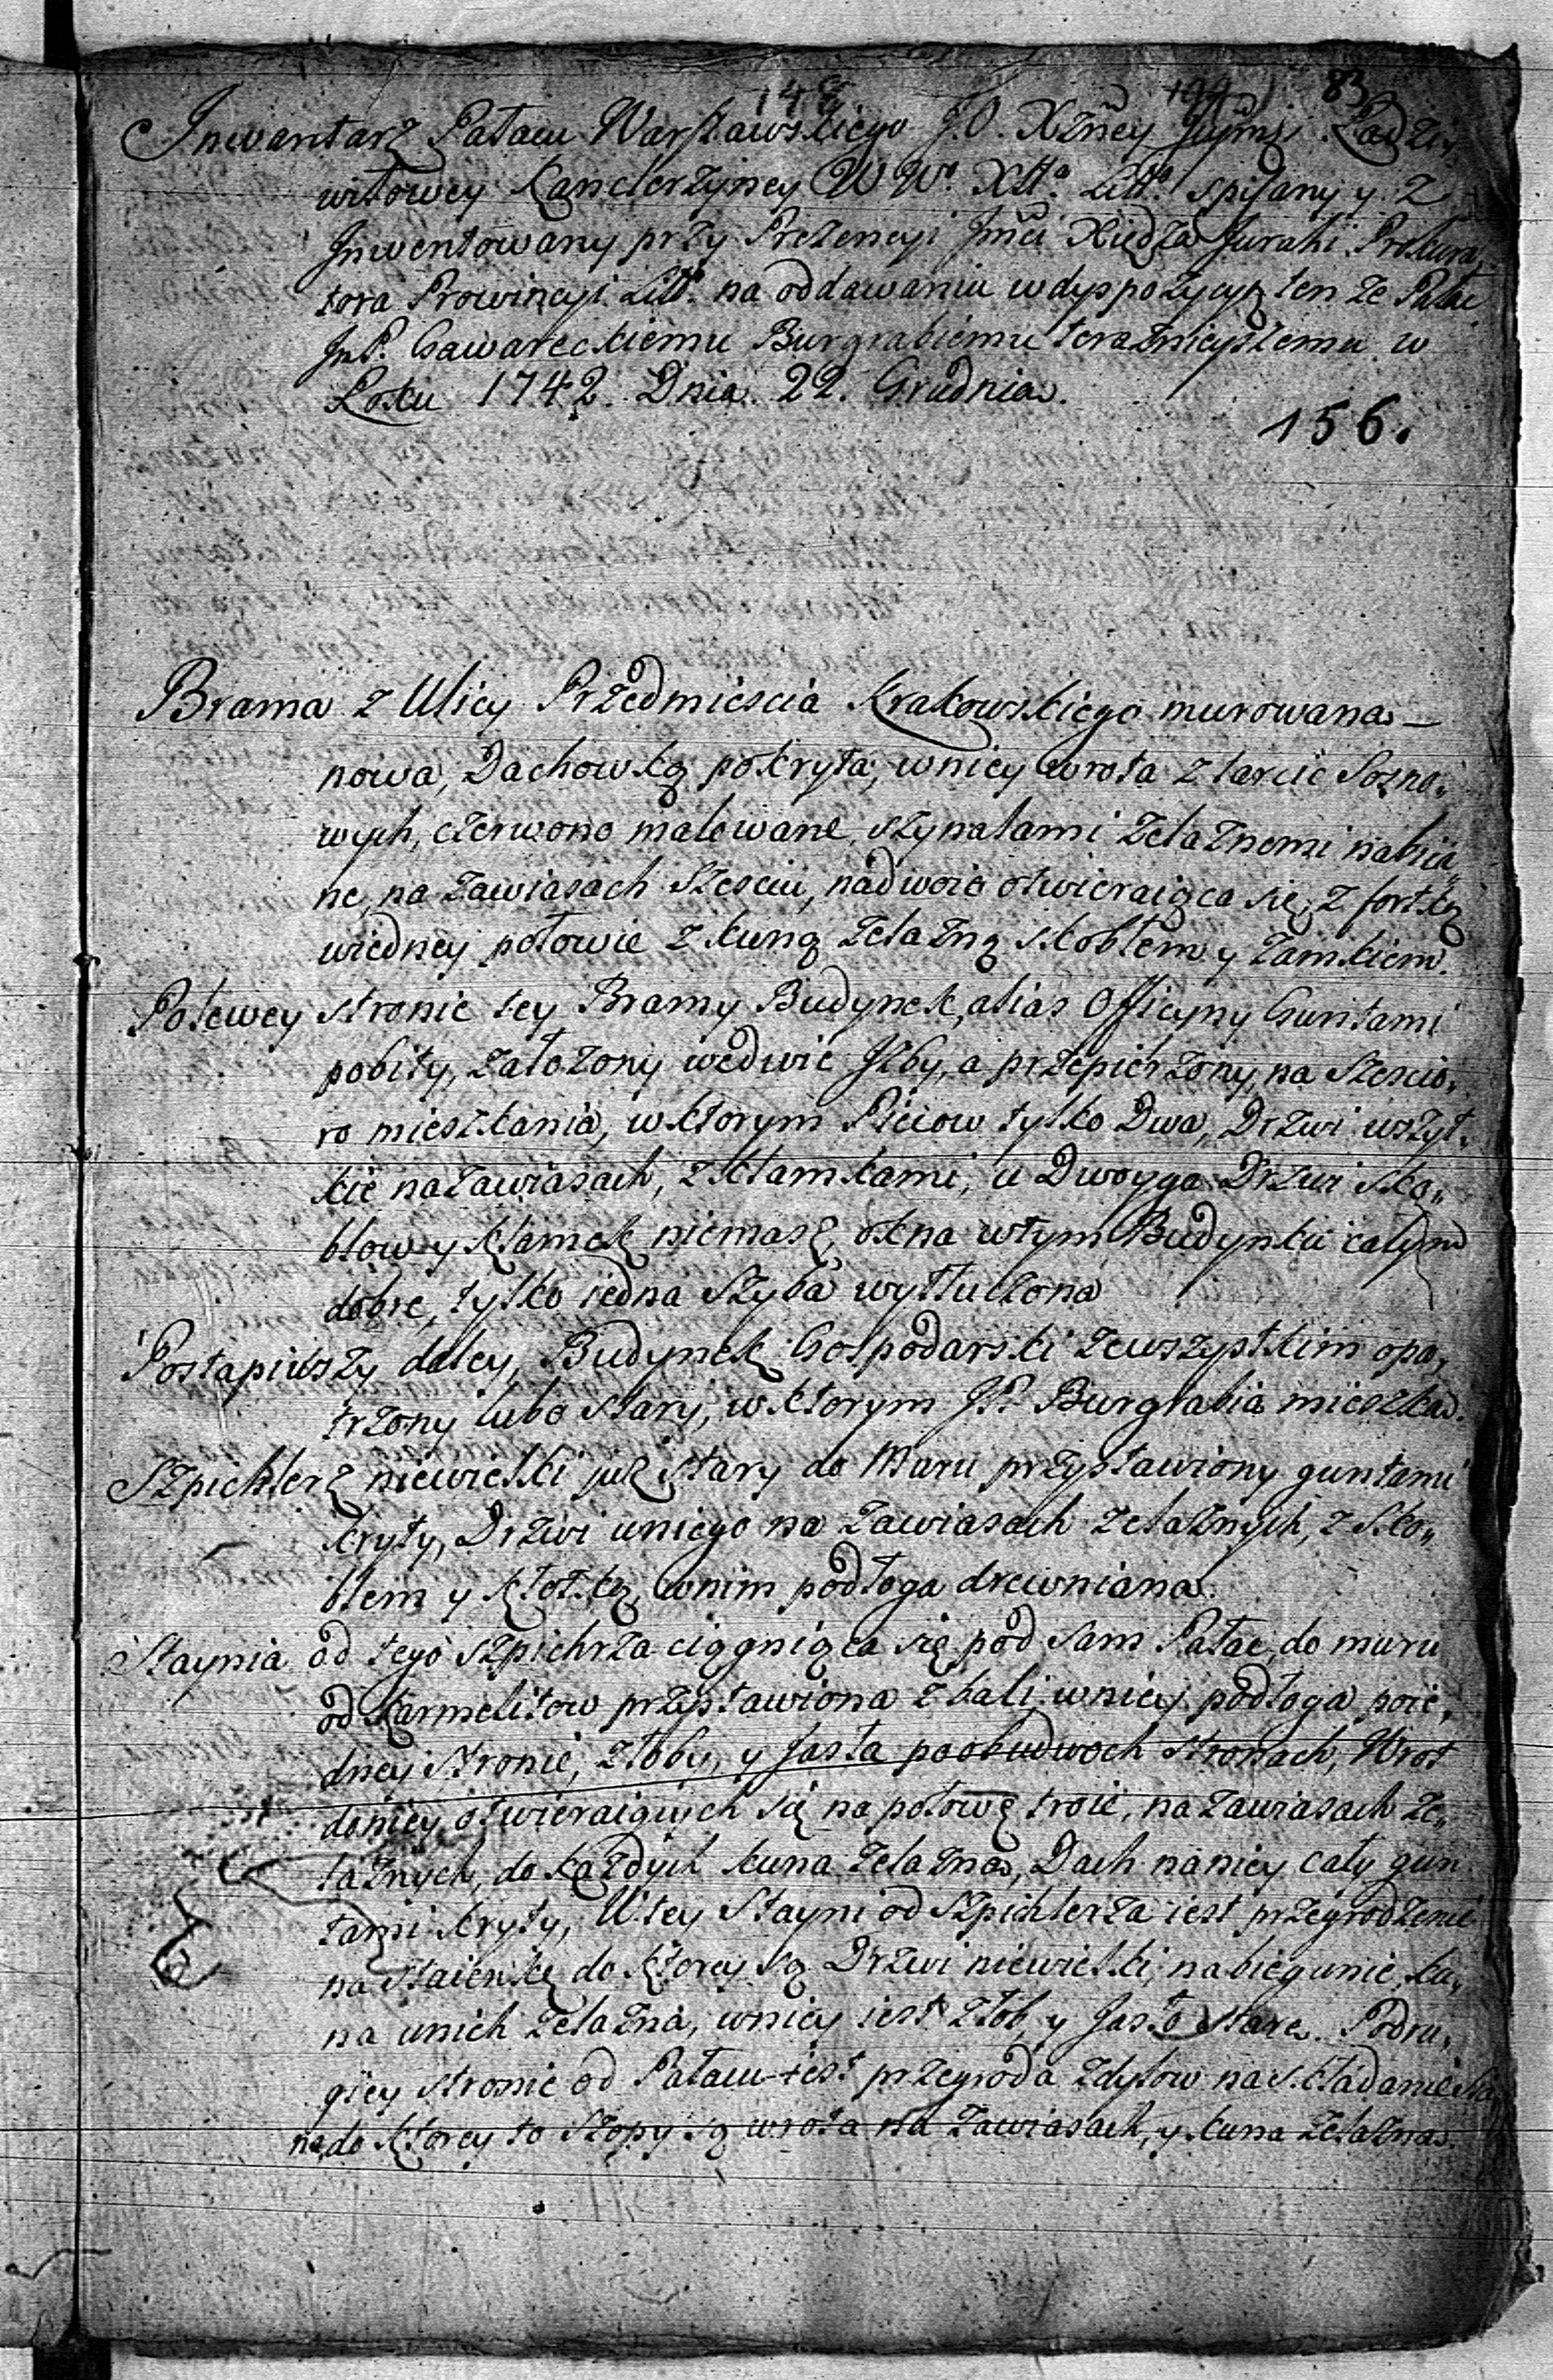 83
Inwentarz Pałacu Warszawskiego J.O. Xżney Jeymsi Radzi„
wiłowey Kanclerzyney W W° Xtt° Litt° spisany y z
Inwentowany przy Prezencyi Jmći Xiędza Jurahi Prokura„
tora Prowincyi Litt. na oddawaniu w dyspozycyą ten że Pałac
JmP. Gawareckiemu Burgrabiemu teraznieyszemu w
Roku 1742. Dnia. 22. Grudnia.
156.
Brama z Ulicy Przedmiescia Krakowskiego murowana
nowa, Dachowką pokryta, wniey wrota z tarcic Sosno„
wych, czerwono malowane, szynalami żelaznemi nabia„
ne, na zawiasach szesciu, nadwoie otwieraiąca się, z fortką
wiedney połowie z kuną żelazną skoblem y zamkiem.
Polewey stronie tey Bramy Budynek, alias Officyny Guntami
pobity, założony wedwie Izby, a przepierzony, na szescio„
ro mieszkania, w ktorym Pieców tylko Dwa, Drzwi wszyt„
kie nazawiasach, z klamkami, u Dwoyga Drzwi sko„
blow y klamek niemasz, okna wtym Budynku całym
dobre, tylko iedna szyba wytłuczona
Postąpiwszy daley, Budynek Gospodarski zewszystkim opa„
trzony lubo stary, w ktorym JP. Burgrabia mieszka.
Szpichlerz niewielki już stary do Muru przystawiony guntami
kryty, Drzwi uniego na zawiasach żelaznych, z sko„
blem y kłotką, wnim podłoga drewniana.
Staynia od tego szpichrza ciągniąca się pod sam Pałac, do muru
od Karmelitow przystawiona z bali, wniey podłoga poie„
dney stronie, złoby, y Jasła poobudwoch stronach, Wrot
doniey otwieraiących się na połowę troie, na zawiasach że„
laznych, do każdych kuna żelazna, Dach naniey cały gun
tami kryty, Wtey Stayni od Szpichlerza iest przegrodzenie
na staienkę do ktorey są Drzwi niewielki, nabiegunie, ku„
na unich żelazna, wniey iest złób, y Jasło stare. Podru„
giey stronie od Pałacu iest przegroda zdylow na składanie sia
na, do ktorey to szopy są wrota na zawiasach, y kuna żelazna.